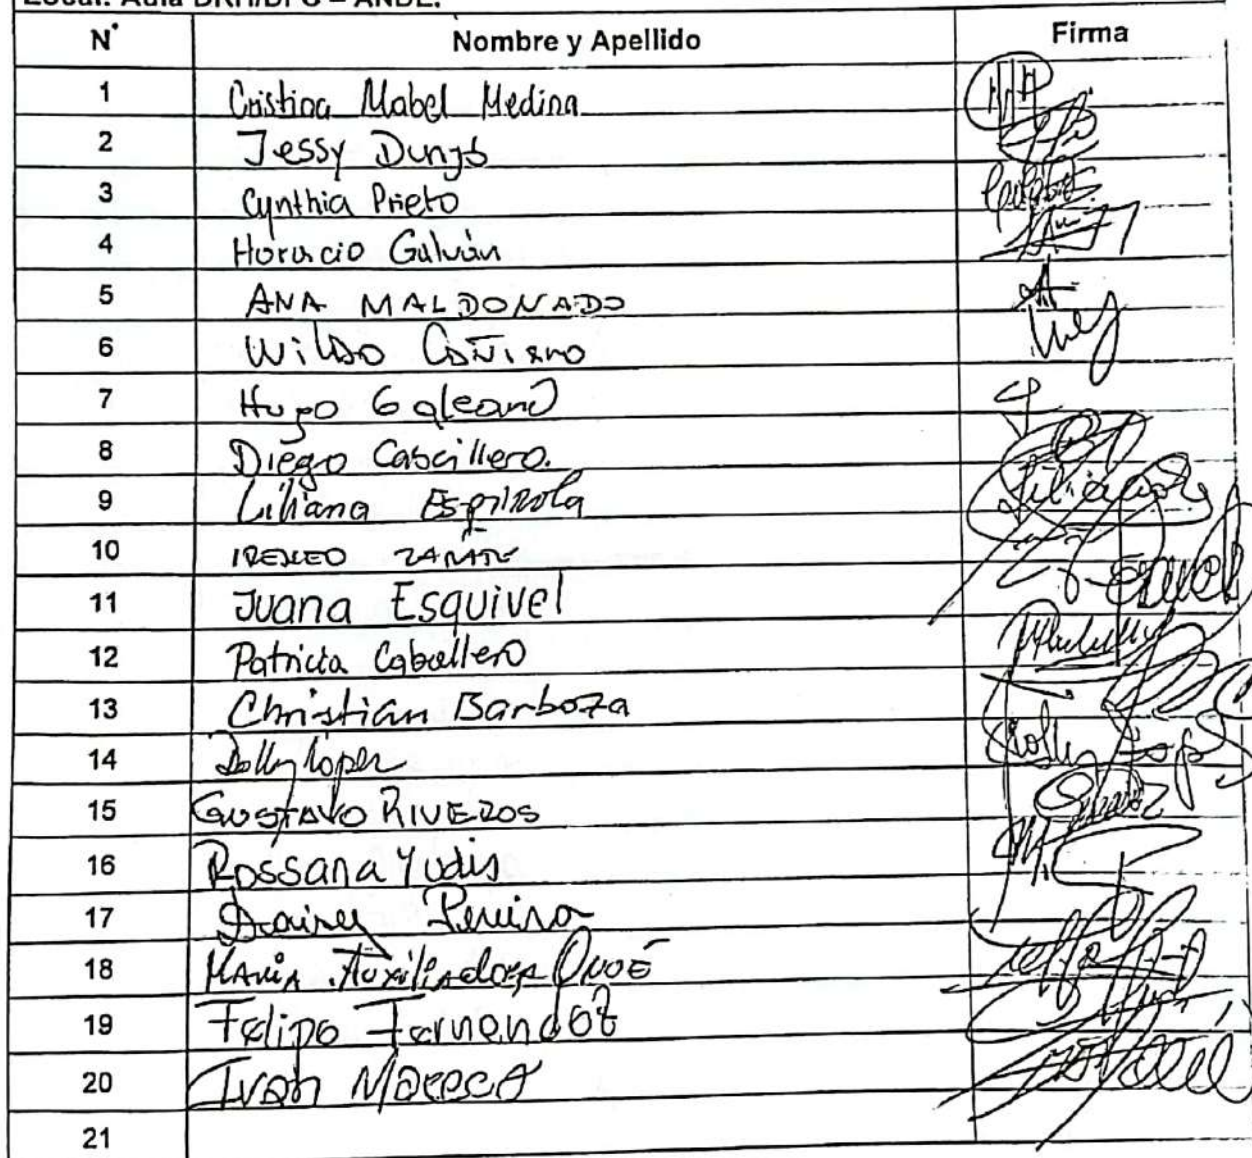 Local: Aula DRH/DFC – ANDE.
N° Nombre y Apellido Firma
1 Cristina Mabel Medina
2 Jessy
3 Cynthia Prieto
4 Horacio Galván
5 ANA MALDONADO
6 Wildo
7 Hugo Galeano
8 Diego
9 Liliana Espínola
10 ZARATE
11 Juana Esquivel
12 Patricia Caballero
13 Christian Barboza
14 Dolly López
15 GUSTAVO RIVEROS
16 Rossana Yudis
17 Pereira
18 MARIA Auxiliadora
19 Felipe Fernandez
20 Ivan
21